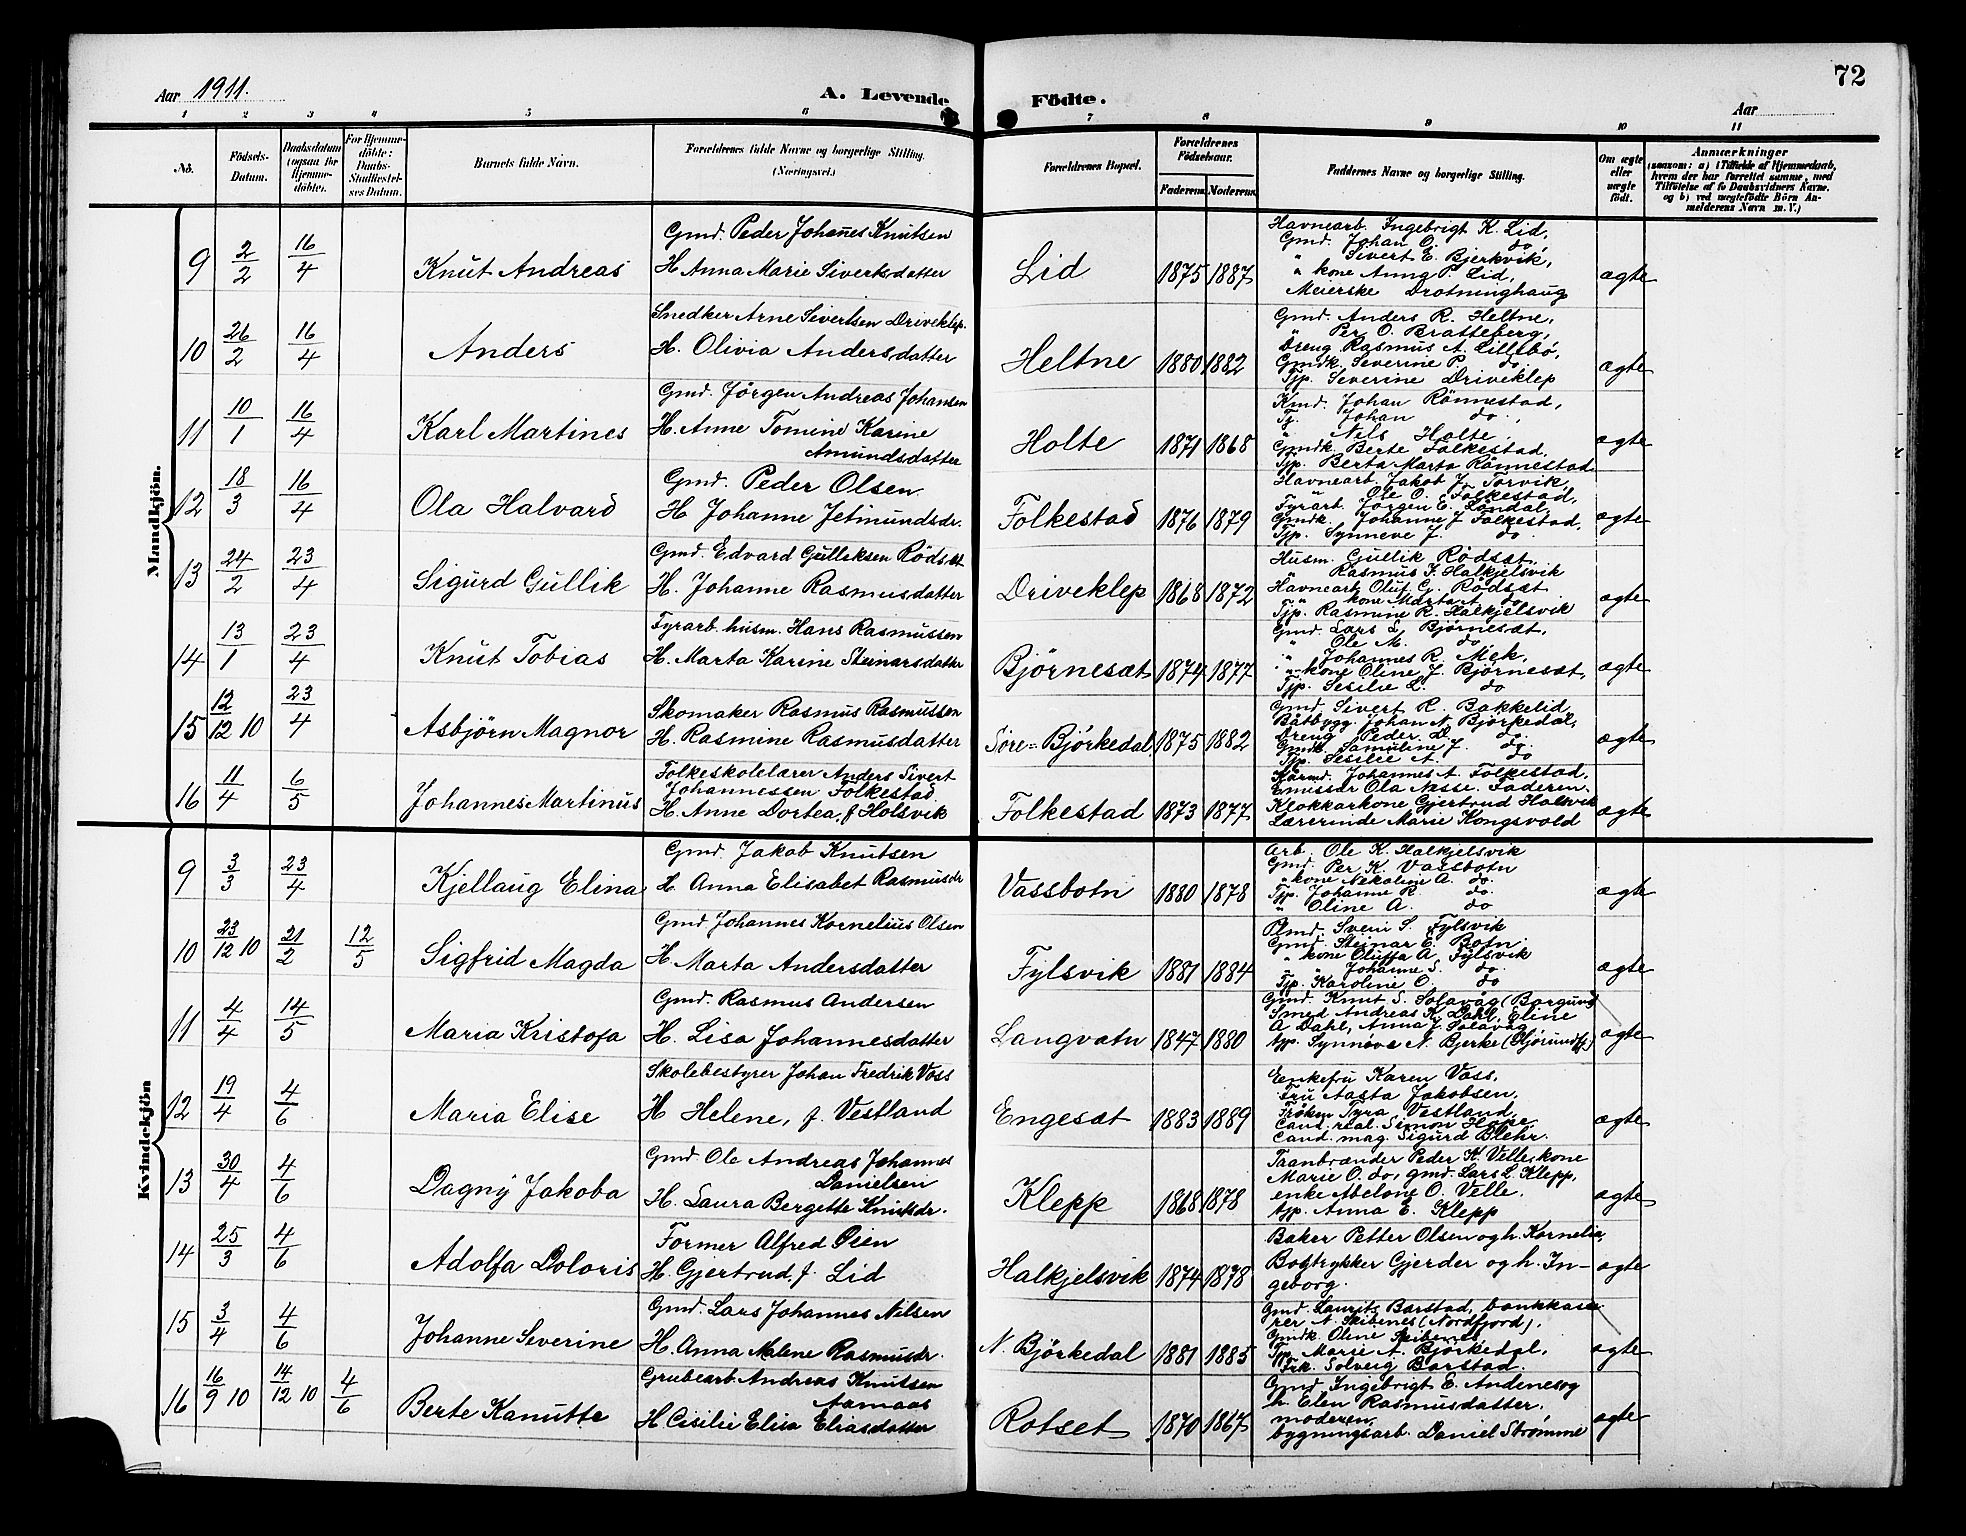 72
Aar 1911. A. Levende Födte. Aar
1 2 3 4 5 6 7 8 9 10 11
No. Födsels-Datum. Daabsdatum (ogsaa for Hjemmedöbte). For Hjemmedöbte: Daabs-Stadfæstelses Datum. Barnets fulde Navn. Forældrenes fulde Navne og borgerlige Stilling. (Næringsvei.) Forældrenes Bopæl. Forældrenes Födselsaar. Faderens. Moderens. Faddernes Navne og borgerlige Stilling. Om ægte eller uægte födt. Anmærkninger (saasom: a) i Tilfælde af Hjemmedaab, hvem der har forrettet samme, med Tilföielse af to Daabsvidners Navne, og b) ved uægtefödte Börn Anmelderens Navn m. V.)
Mandkjön.
9 2/2 16/4 Knut Andreas
Gmd. Peder Johanes Knutsen
H Anna Marie Sivertsdatter
Lid 1875 1887
Havnearb. Ingebrigt K. Lid,
Gmd. Johan O. do,
" Sivert E. Bjerkvik,
" kone Anna P. Lid,
Meierske Drotninghaug
ægte
10 26/2 16/4 Anders
Snedker Arne Sivertsen Driveklep.
H. Olivia Andersdatter
Heltne 1880 1882
Gmd. Anders R. Heltne,
" Per O. Bratteberg,
Dreng Rasmus A. Lillebö,
Gmdk. Severine P. do,
Tjp. Severine Driveklep
ægte
11 10/1 16/4 Karl Martines
Gmd. Jörgen Andreas Johansen
H. Anne Tomine Karine
Amundsdatter
Holte 1871 1868
Kmd. Johan Rönnestad,
Tj. Johan do,
" Nils Holte.
Gmdk. Berte Folkestad,
Tjp. Berta Marta Rönnestad
ægte
12 18/3 16/4 Ola Halvard
Gmd. Peder Olsen
H Johanne Jetmundsdr.
Folkestad 1876 1879
Havnearb. Jakob J. Torvik,
" Ole O. Folkestad,
Fyrarb. Jörgen E. Löndal,
Gmdk. Johanne J Folkestad,
Tjp. Synneve J. do
ægte
13 24/2 23/4 Sigurd Gullik
Gmd. Edvard Gulliksen Rödset
H. Johanne Rasmusdatter
Driveklep 1868 1872
Husm. Gullik Rödsæt,
" Rasmus J. Halkjelsvik
Havnearb. Oluf G. Rödsæt
" kone Marta A. do
Tjp. Rasmine R. Halkjelsvik
ægte
14 13/1 23/4 Knut Tobias
Fyrarb. husm. Hans Rasmussen
H. Marta Karine Steinarsdatter
Bjørnesæt 1874 1877
Gmd. Lars L. Bjørnesæt,
" Ole M. do
" Johannes R. Mek,
" kone Oline J. Bjørnesæt,
Tjp. Sesilie L. do
ægte
15 12/12 10 23/4 Asbjörn Magnor
Skomaker Rasmus Rasmussen
H. Rasmine Rasmusdatter
Søre-Bjórkedal 1875 1882
Gmd. Sivert R. Bakkelid
Båtbygg. Johan N. Bjørkedal,
Dreng Peder D. do.
Gmdk. Samuline J. do.
Tjp. Sesilie A. do
ægte
16 11/4 6/5 Johannes Martinus
Folkeskolelærer Anders Sivert
Johannessen Folkestad
H. Anne Dortea, f Holsvik
Folkestad 1873 1877
Kårmd. Johannes A. Folkestad,
Emissær Ola Nesse. Faderen.
Klokkarkone Gjertrud Holsvik
Lærerinde Marie Kongsvold
ægte
Kvindekjön
9 3/3 23/4 Kjellaug Elina
Gmd. Jakob Knutsen
H. Anna Elisabet Rasmusdr
Vassbotn 1880 1878
Arb. Ole K. Halkjelsvik
Gmd. Per K. Vassbotn
" kone Nekoline A. do.
Tjp. Johanne R do.
" Oline A. do
ægte
10 23/12 10 21/2 12/5 Sigfrid Magda
Gmd Johannes Kornelius Olsen
H. Marta Andersdatter
Fylsvik 1881 1884
Plmd. Svein S. Fylsvik
Gmd. Steinar E. Botn
" kone Oluffa A. Fylsvik
" Johanne S. do.
Tjp. Karoline O. do
ægte
11 4/4 14/5 Maria Kristofa
Gmd. Rasmus Andersen
H. Lisa Johannesdatter
Langvatn 1847 1880
Gmd. Knut S. Solavåg (Borgund)
Smed Andreas K. Dahl, Eline
A Dahl, Anna J. Solavåg
tjp. Synnøve N. Bjerke (Hjørundfj.)
ægte
12 19/4 4/6 Maria Elise
Skolebestyrer Johan Fredrik Voss
H Helene, f. Vestland
Engesæt 1883 1889
Eenkefru Karen Voss,
Fru Aasta Jakobsen,
Frøken Tyra Vestland,
Cand. real. Simon Hove,
Cand. mag. Sigurd Blehr.
ægte
13 30/4 4/6 Dagny Jakoba
Gmd. Ole Andreas Johannes
Danielsen
H. Laura Bergette Knutsdr.
Klepp 1868 1878
Taanbrænder Peder K. Velle, kone
Marie O. do, gmd. Lars L. Klepp,
enke Abelone O. Velle,
tjp. Anna E. Klepp
ægte
14 25/3 4/6 Adolfa Doloris
Former Alfred Øien
H. Gjertrud, f. Lid
Halkjelsvik 1874 1878
Baker Petter Olsen og h. Kornelia,
Bogtrykker Gjerder og h. In-
geborg.
ægte
15 3/4 4/6 Johanne Severine
Gmd. Lars Johannes Nilsen
H. Anna Malene Rasmusdr.
N. Bjórkedal 1881 1885
Gmd. Laurits Barstad, bankkase-
rer N. Skibenes (Nordfjord),
Gmdk. Oline Skibenes,
Tjp. Marie A. Bjórkedal,
Frk. Solveig Barstad.
ægte
16 16/9 10 14/12 10 4/6 Berte Kanutte
Grubearb. Andreas Knutsen
Aamaas
H Cisilie Elisa Eliasdatter
Rotset 1870 1867
Gmd Ingebrigt E. Andenes og
h. Elen Rasmusdatter,
moderen,
bygningsarb. Daniel Strømme
ægte